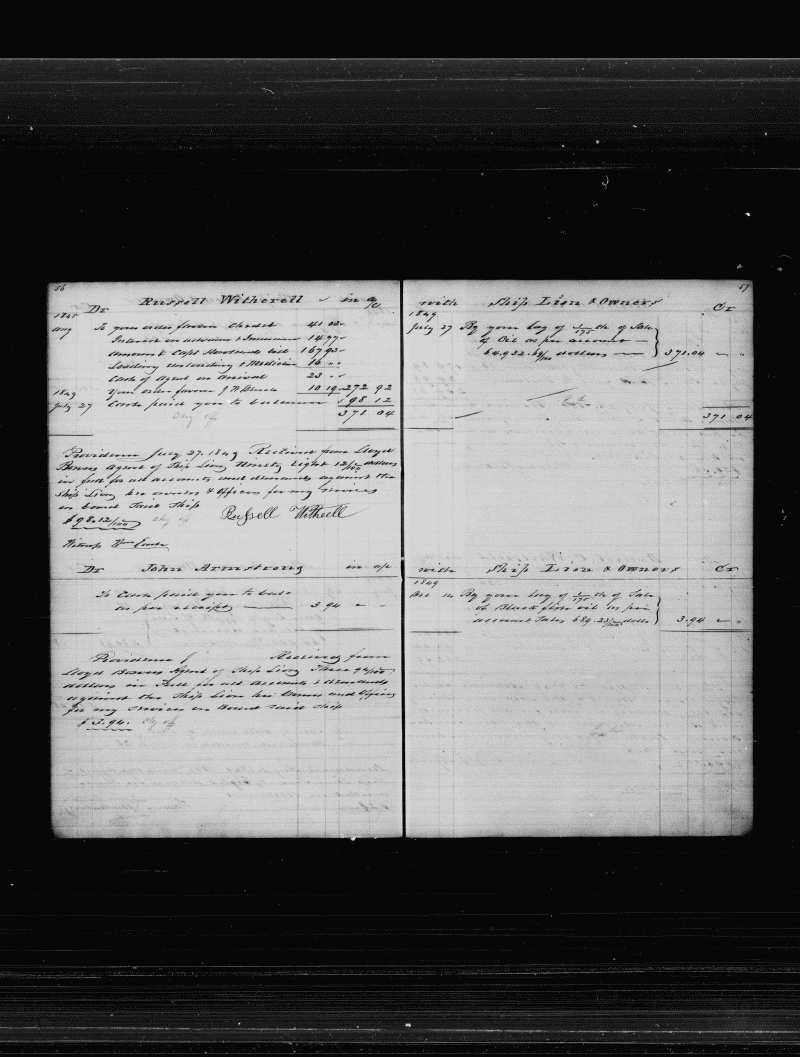 56
Dr Russell Witherell in a/c
1845
Aug To your order favour
Interest on advance & Insurance 14.97
Amount of Capt bill 167.93
Loading unloading & Medicine 16
Cash of Agent on Arrival 23
1849 Your order favour J 10 19 272 92
July 27 Cash paid you to balance 98 12
371 04
Providence July 27. 1849 Received from Lloyd
Bowers Agent of Ship Lion, Ninety Eight 12/100 dollars
in full for all accounts and demands against the
Ship Lion her owners & officers for my services
on board Said Ship
$98.12/100 Russell Witherell
Witness Wm
Dr John Armstrong in a/c
To Cash paid you to bala
as per receipt 3 94
Providence Received from
Lloyd Bowers Agent of Ship Lion, Three 94/100
dollars in full for all Accounts & demands
against the Ship Lion her Owners and Officers
for my Services on Board said Ship
$3.94.
57
with Ship Lion & Owners Cr
1849
July 27 By your lay of 1/175 th of Sale
of Oil as per account
dollars 371.04
371 04
with Ship Lion & Owners Cr
1849
Dec 14 By your lay of 1/175 th of Sale
of Black fish oil as per
account Sales 689.23/100 dolls 3.94